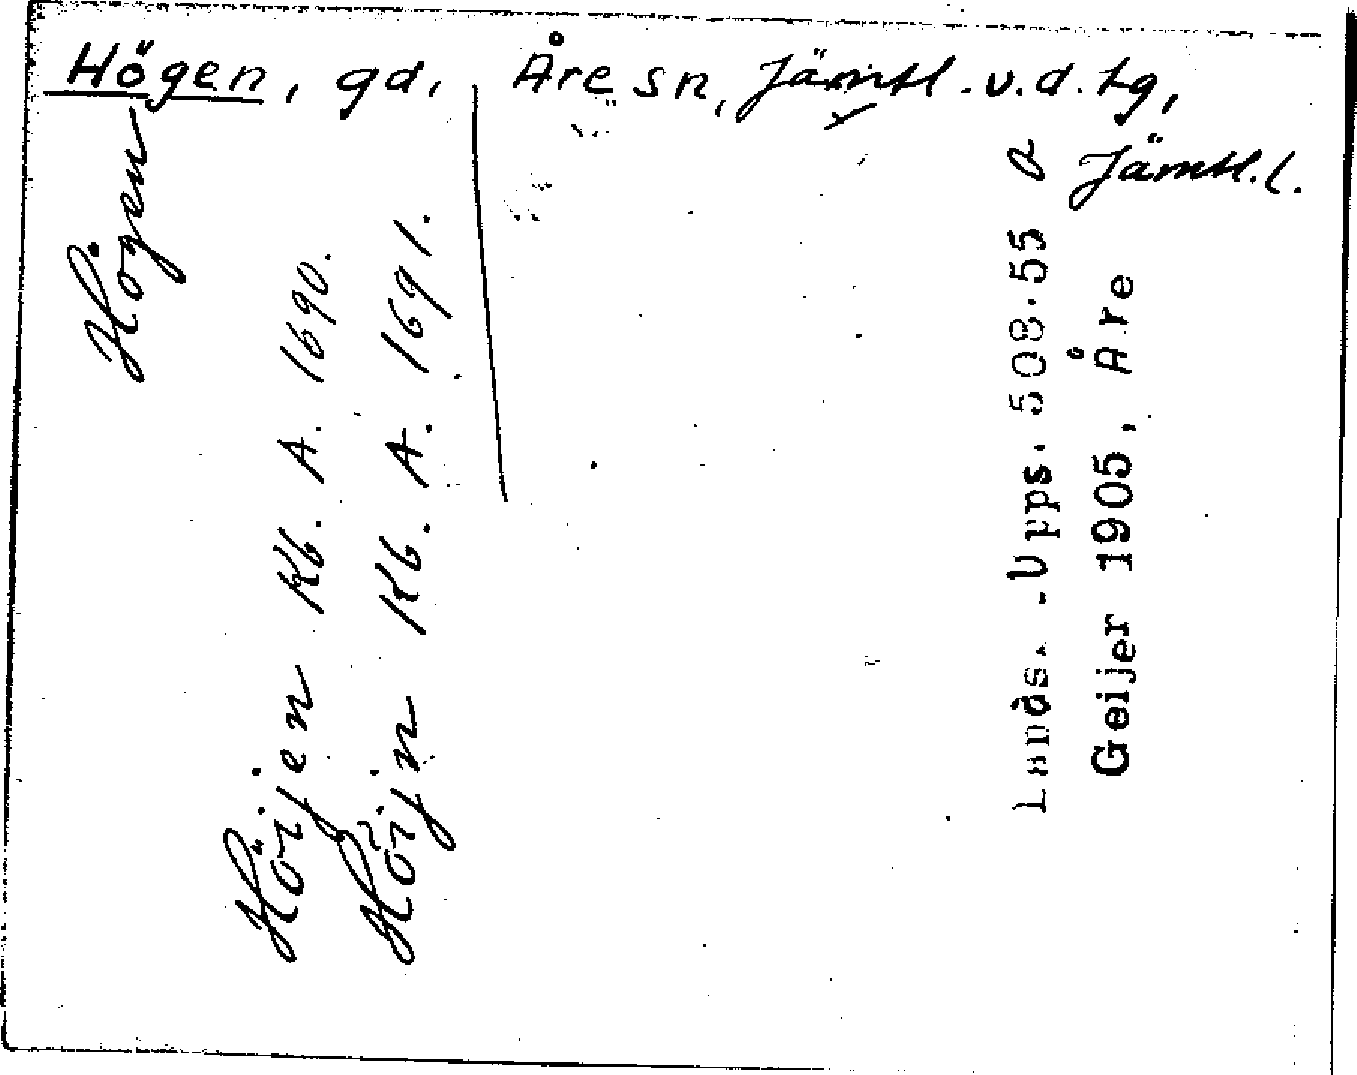 Högen, gd, Åre sn, Jämtl. v. d. tg,
Jämtl. l.
Högen
Höijen Kb. A. 1690.
Höijn Kb. A. 1691.
Lands.-Upps. 508·55
Geijer 1905, Åre